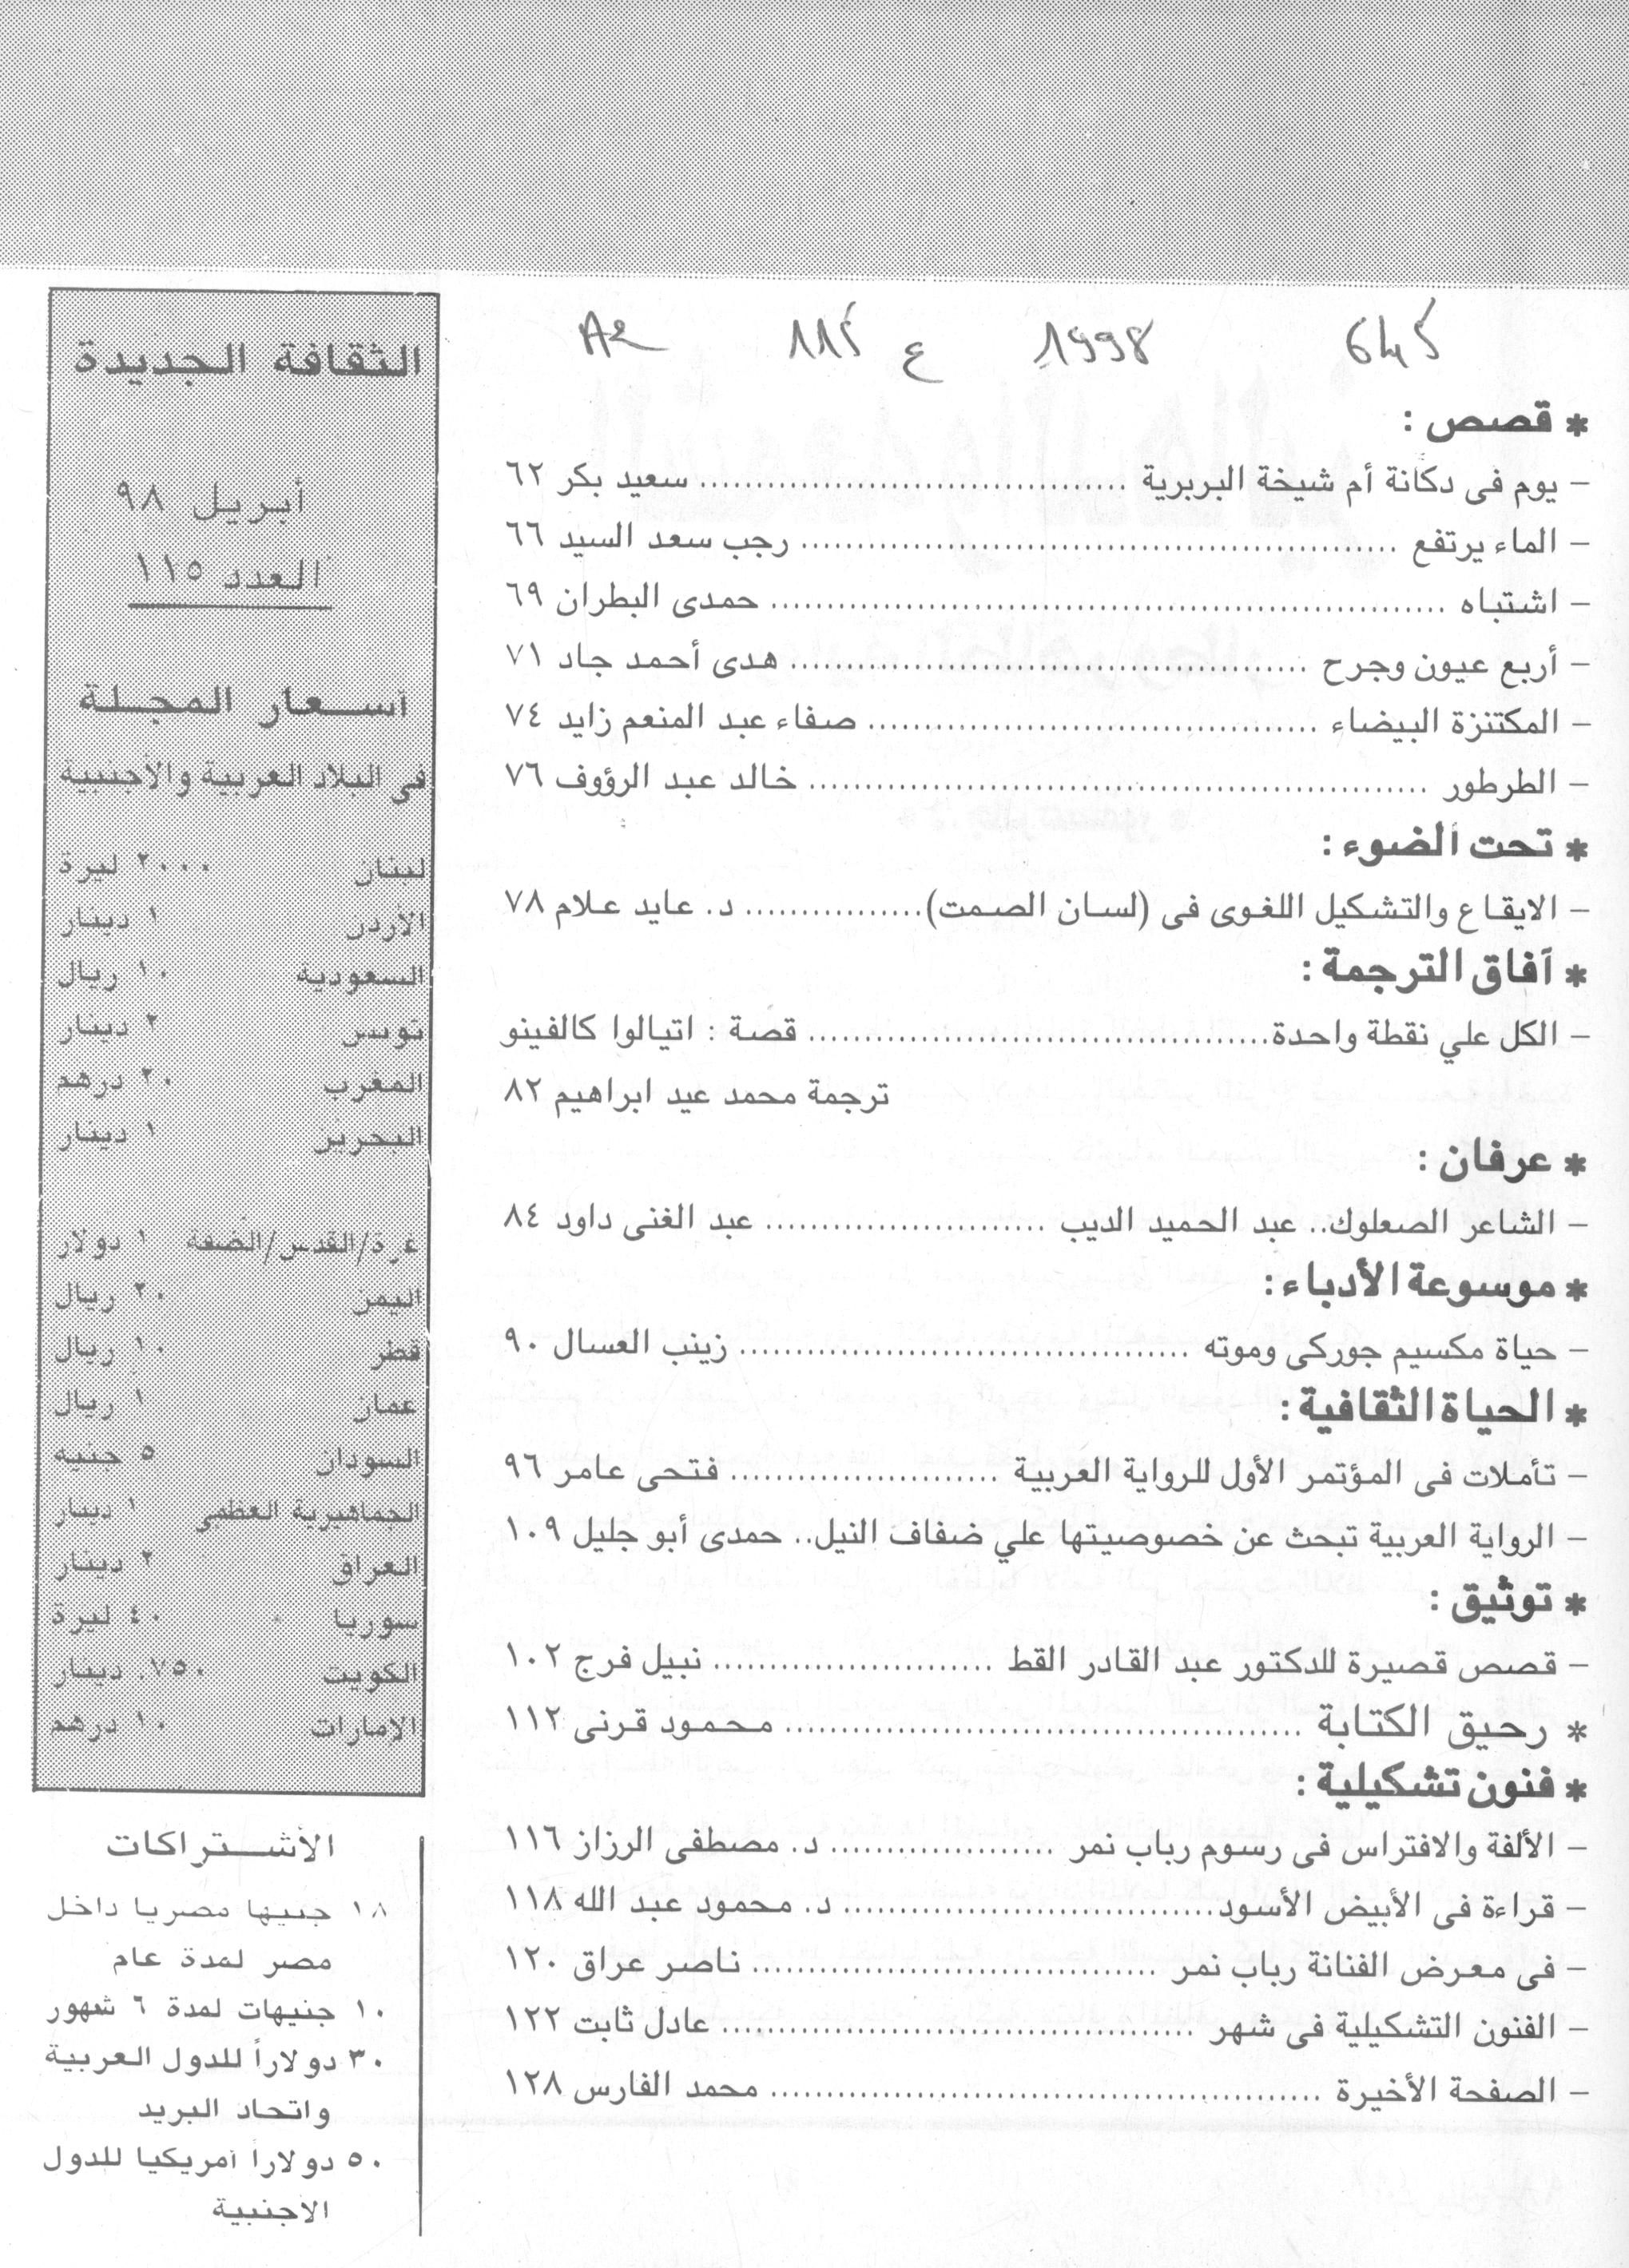 645 1998 ع 115 A2
* قصص :
– يوم فى دكانة أم شيخة البربرية ........ سعيد بكر ٦٢
– الماء يرتفع ........ رجب سعد السيد ٦٦
– اشتباه ........ حمدى البطران ٦٩
– أربع عيون وجرح ........ هدى أحمد جاد ٧١
– المكتنزة البيضاء ........ صفاء عبد المنعم زايد ٧٤
– الطرطور ........ خالد عبد الرؤوف ٧٦
* تحت الضوء :
– الايقاع والتشكيل اللغوى فى (لسان الصمت)........ د. عايد علام ٧٨
* آفاق الترجمة :
– الكل علي نقطة واحدة........ قصة : اتيالوا كالفينو
ترجمة محمد عيد ابراهيم ٨٢
* عرفان :
– الشاعر الصعلوك.. عبد الحميد الديب ........ عبد الغنى داود ٨٤
* موسوعة الأدباء :
– حياة مكسيم جوركى وموته ........ زينب العسال ٩٠
* الحياة الثقافية :
– تأملات فى المؤتمر الأول للرواية العربية ........ فتحى عامر ٩٦
– الرواية العربية تبحث عن خصوصيتها علي ضفاف النيل.. حمدى أبو جليل ١٠٩
* توثيق :
– قصص قصيرة للدكتور عبد القادر القط ........ نبيل فرج ١٠٢
* رحيق الكتابة ........ محمود قرنى ١١٢
* فنون تشكيلية :
– الألفة والافتراس فى رسوم رباب نمر ........ د. مصطفى الرزاز ١١٦
– قراءة فى الأبيض الأسود........ د. محمود عبد الله ١١٨
– فى معرض الفنانة رباب نمر ........ ناصر عراق ١٢٠
– الفنون التشكيلية فى شهر ........ عادل ثابت ١٢٢
– الصفحة الأخيرة ........ محمد الفارس ١٢٨
الثقافة الجديدة
أبريل ٩٨
العدد ١١٥
أسـعار المجـلة
فى البلاد العربية والاجنبية
لبنان ٢٠٠٠ ليرة
الأردن ١ دينار
السعودية ١٠ ريال
تونس ٢ دينار
المغرب ٢٠ درهم
البحرين ١ دينار
غزة/القدس/الضفة ١ دولار
اليمن ٢٠ ريال
قطر ١٠ ريال
عمان ١ ريال
السودان ٥ جنيه
الجماهيرية العظمى ١ دينار
العراق ٢ دينار
سوريا ٤٠ ليرة
الكويت ٧٥٠. دينار
الامارات ١٠ درهم
الأشـتراكات
١٨ جنيها مصريا داخل
مصر لمدة عام
١٠ جنيهات لمدة ٦ شهور
٣٠ دولاراً للدول العربية
واتحاد البريد
٥٠ دولاراً أمريكيا للدول
الاجنبية